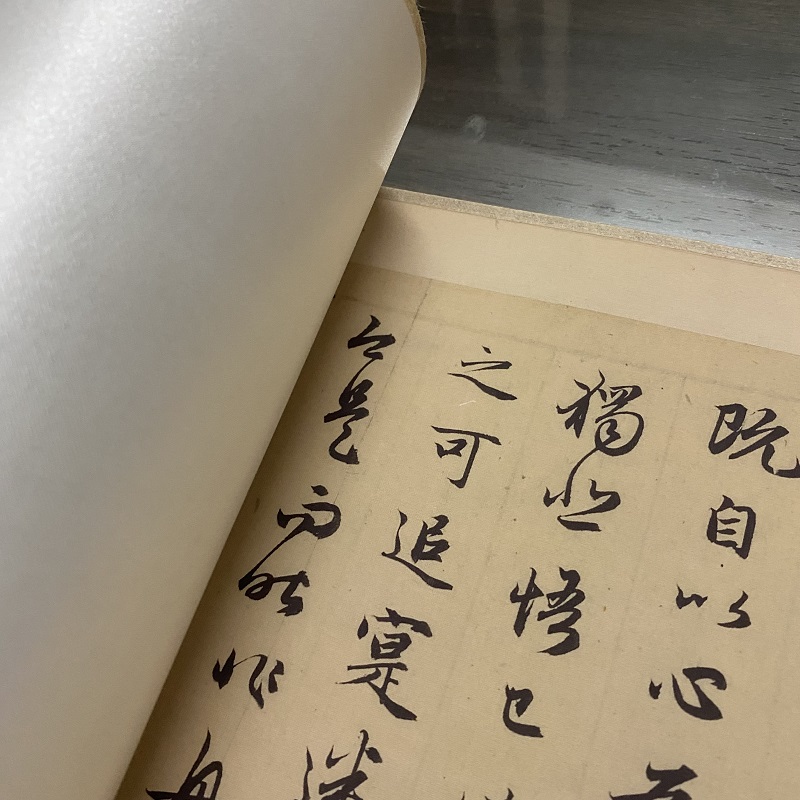 既自以心
獨悲悟已
之可追寔迷
今是而昨非舟